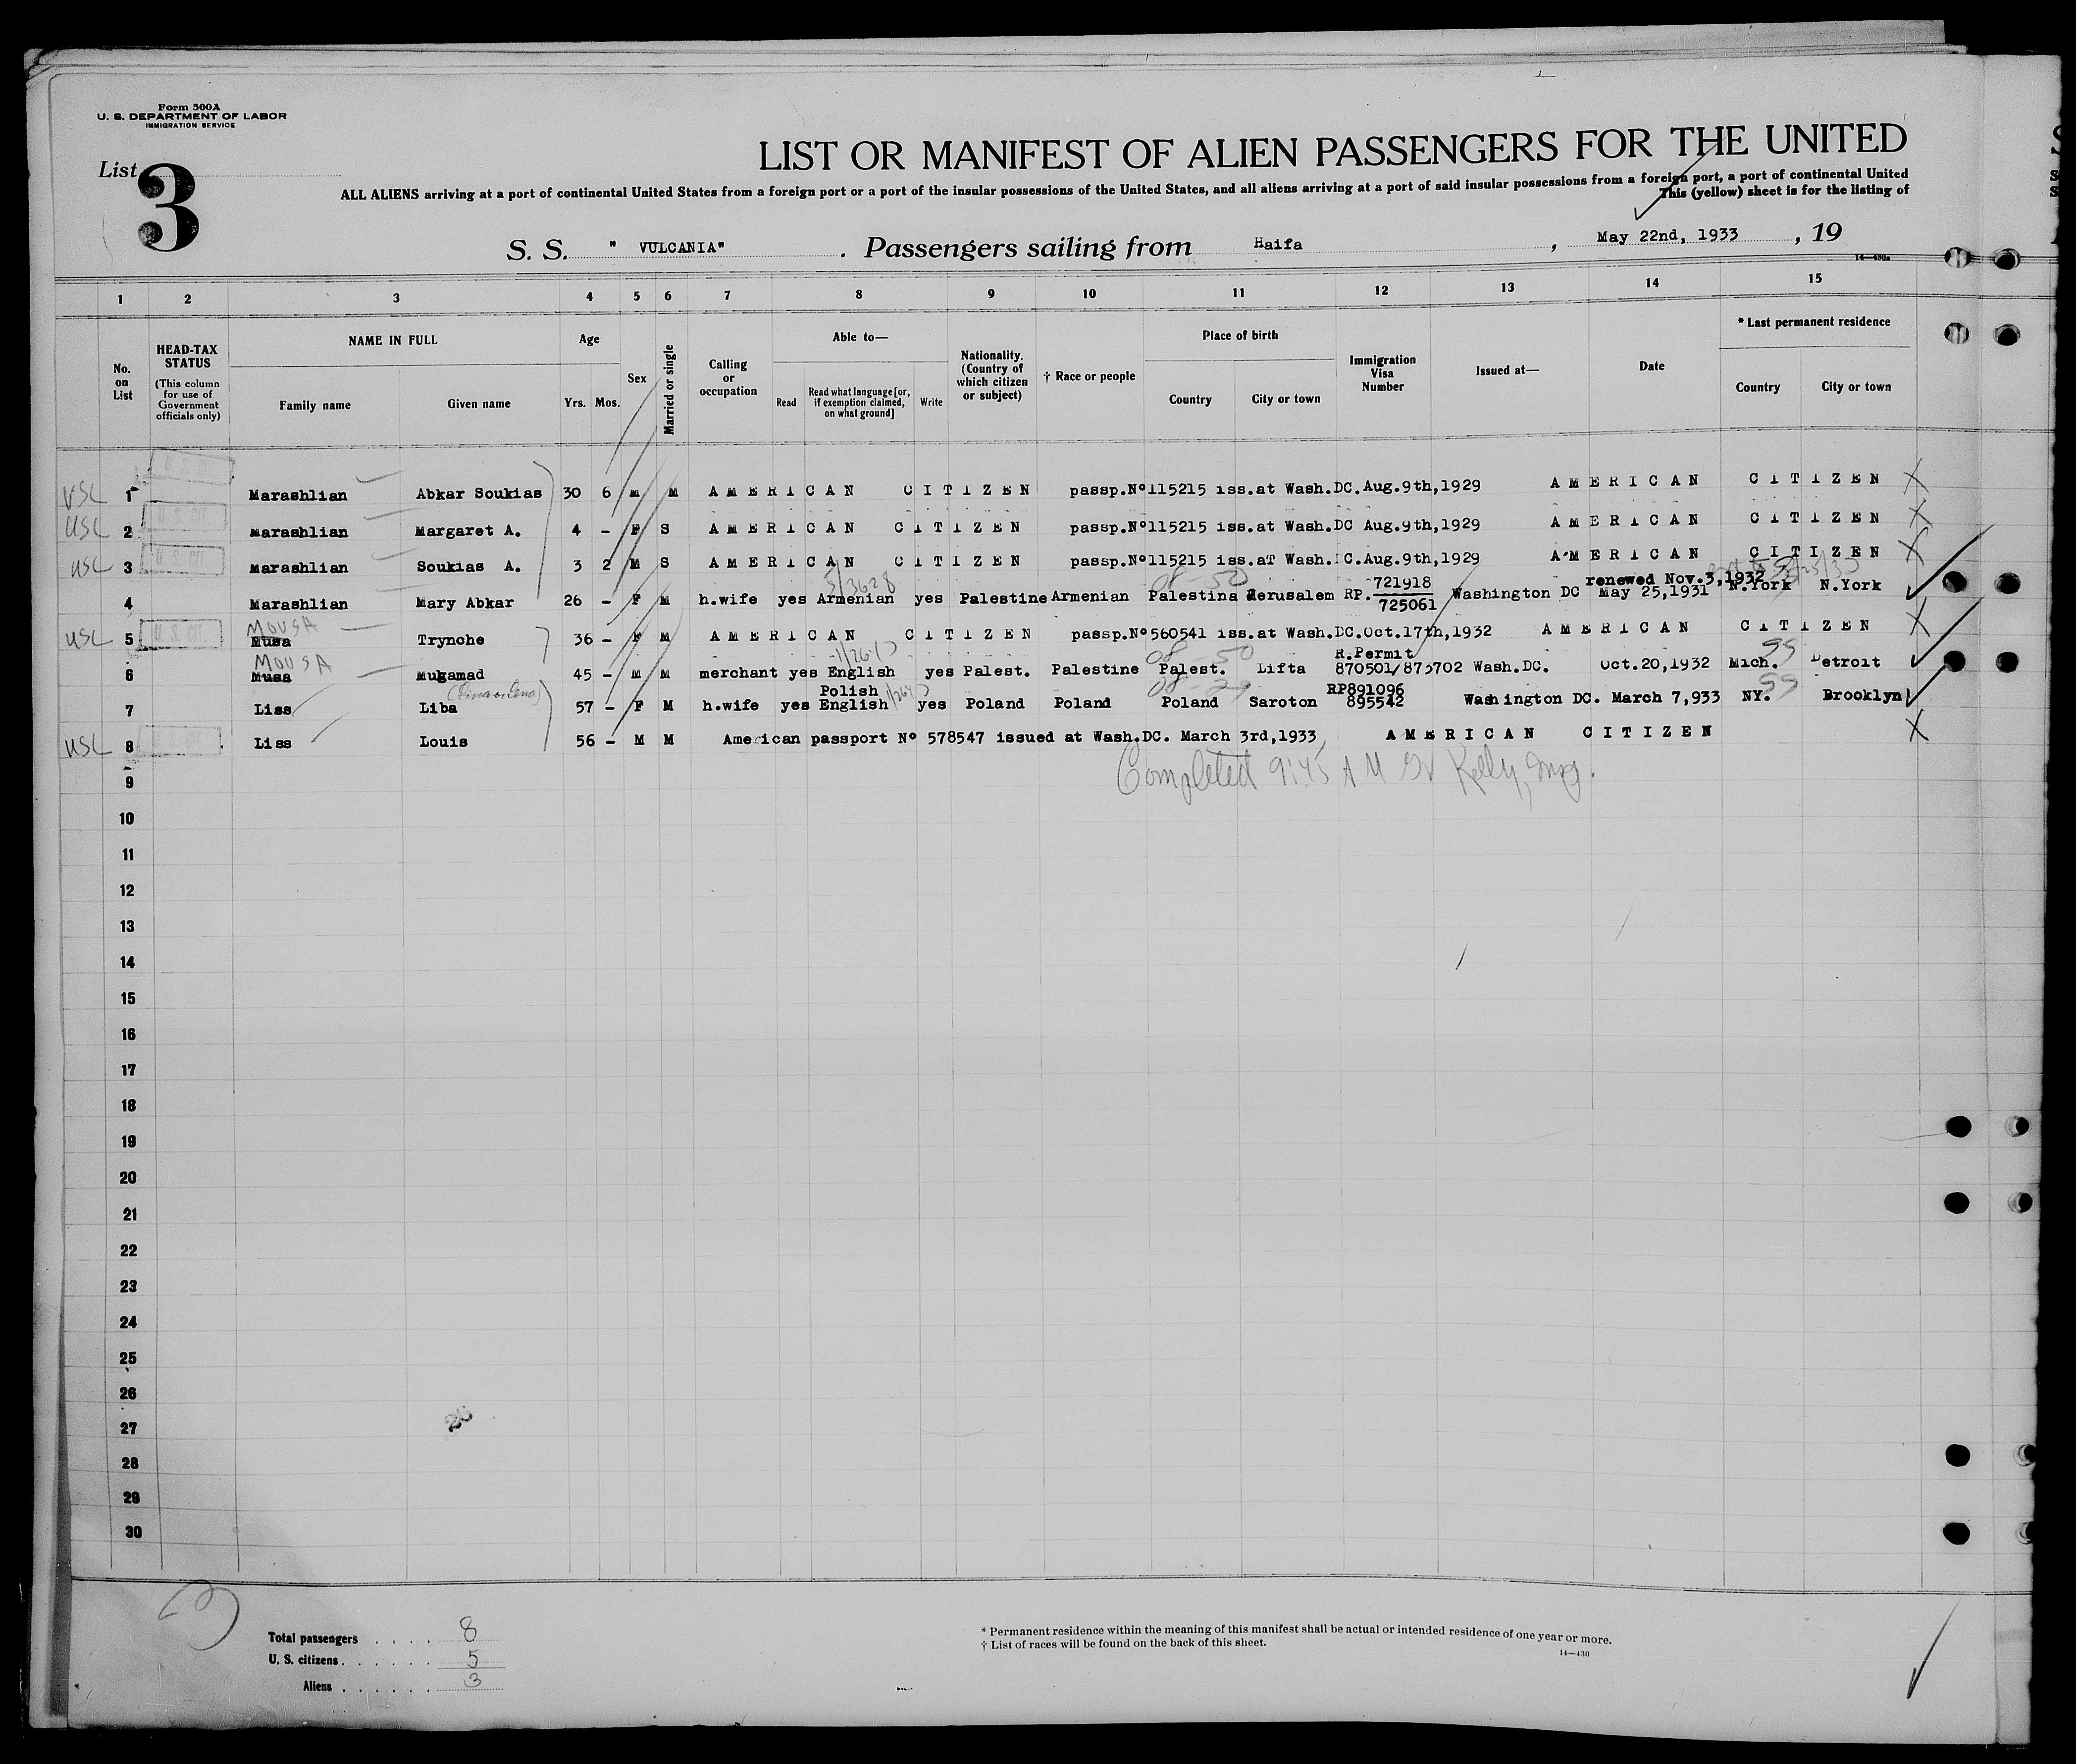 Form 500A
U. S. DEPARTMENT OF LABOR
IMMIGRATION SERVICE
List 3
LIST OR MANIFEST OF ALIEN PASSENGERS FOR THE UNITED
ALL ALIENS arriving at a port of continental United States from a foreign port or a port of the insular possessions of the United States, and all aliens arriving at a port of said insular possessions from a foreign port, a port of continental United
This (yellow) sheet is for the listing of
S. S. " VULCANIA" . Passengers sailing from Haifa , May 22nd, 1933 , 19
14—430a
1 2 3 4 5 6 7 8 9 10 11 12 13 14 15
No. on List
HEAD-TAX STATUS
(This column for use of Government officials only)
NAME IN FULL
Family name Given name
Age
Yrs. Mos.
Sex
Married or single
Calling or occupation
Able to—
Read Read what language [or, if exemption claimed, on what ground] Write
Nationality. (Country of which citizen or subject)
† Race or people
Place of birth
Country City or town
Immigration Visa Number
Issued at—
Date
* Last permanent residence
Country City or town
USC 1 Marashlian Abkar Soukias 30 6 M M AMERICAN CITIZEN passp.Nº115215 iss.at Wash.DC.Aug.9th,1929 AMERICAN CITIZEN X
USC 2 Marashlian Margaret A. 4 - F S AMERICAN CITIZEN passp.Nº115215 iss.at Wash.DC Aug.9th,1929 AMERICAN CITIZEN X
USC 3 Marashlian Soukias A. 3 2 M S AMERICAN CITIZEN passp.Nº115215 iss.aT Wash.DC.Aug.9th,1929 AMERICAN CITIZEN X
5/3628 08-50 721918 renewed Nov.3,1932
4 Marashlian Mary Abkar 26 - F M h.wife yes Armenian yes Palestine Armenian Palestina Jerusalem RP. 725061 Washington DC May 25,1931 N.York N.York
MOUSA
USC 5 Musa Trynche 36 - F M AMERICAN CITIZEN passp.Nº560541 iss.at Wash.DC.Oct.17th,1932 AMERICAN CITIZEN X
MOUSA 08-50 R.Permit 99
6 Musa Mukamad 45 - M M merchant yes English yes Palest. Palestine Palest. Lifta 870501/873702 Wash.DC. Oct.20,1932 Mich. Detroit
Polish 08-29 RP891096 99
7 Liss Liba 57 - F M h.wife yes English yes Poland Poland Poland Saroton 895542 Washington DC. March 7,933 NY. Brooklyn
USC 8 Liss Louis 56 - M M American passport Nº 578547 issued at Wash.DC. March 3rd,1933 AMERICAN CITIZEN X
Completed 9:45 AM Kelly, Insp.
9
10
11
12
13
14
15
16
17
18
19
20
21
22
23
24
25
26
27
28
29
30
26
Total passengers . . . . 8
U. S. citizens . . . . . . 5
Aliens . . . . . . 3
* Permanent residence within the meaning of this manifest shall be actual or intended residence of one year or more.
† List of races will be found on the back of this sheet.
14—430